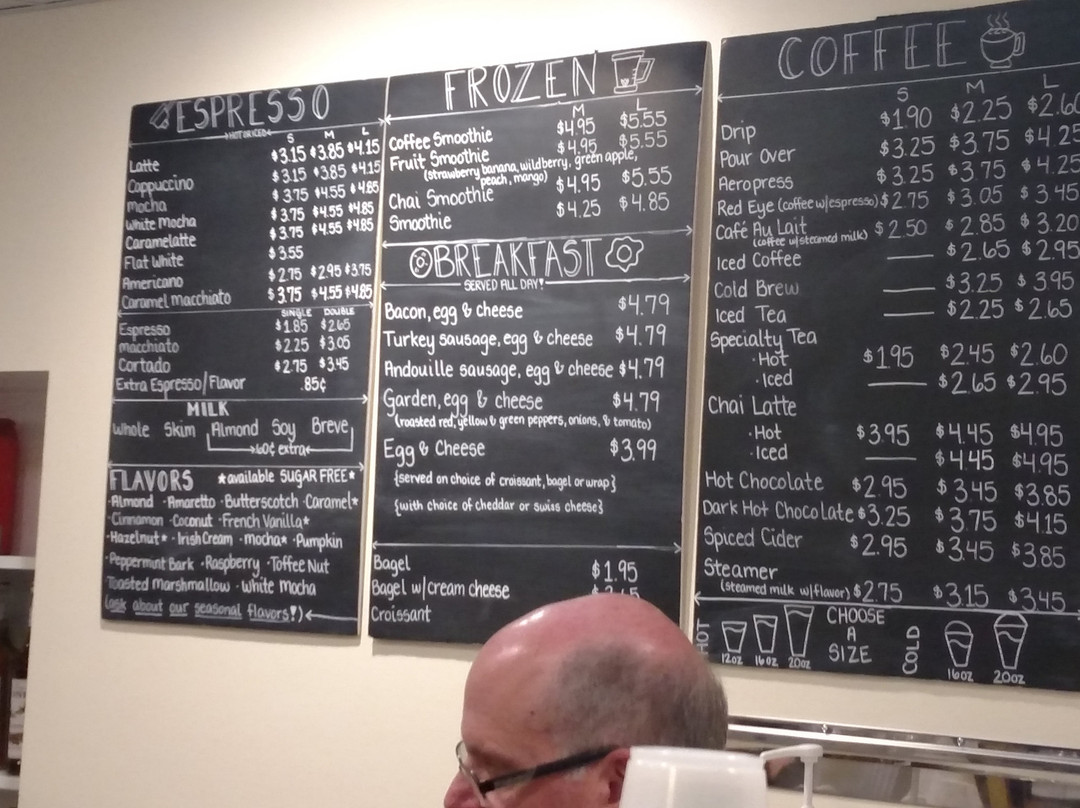 ESPRESSO
HOT OR ICED
S M L
Latte $3.15 $3.85 $4.15
Cappuccino $3.15 $3.85 $4.15
Mocha $3.75 $4.55 $4.85
White Mocha $3.75 $4.55 $4.85
Caramelatte $3.75 $4.55 $4.85
Flat White $3.55
Americano $2.75 $2.95 $3.75
Caramel Macchiato $3.75 $4.55 $4.85
SINGLE DOUBLE
Espresso $1.85 $2.65
Macchiato $2.25 $3.05
Cortado $2.75 $3.45
Extra Espresso/Flavor .85¢
MILK
Whole Skim Almond Soy Breve
60¢ extra
FLAVORS *available SUGAR FREE*
·Almond ·Amaretto ·Butterscotch ·Caramel*
·Cinnamon ·Coconut ·French Vanilla*
·Hazelnut* ·Irish Cream ·Mocha* ·Pumpkin
·Peppermint Bark ·Raspberry ·Toffee Nut
Toasted Marshmallow ·White Mocha
(ask about our seasonal flavors!)
FROZEN
M L
Coffee Smoothie $4.95 $5.55
Fruit Smoothie $4.95 $5.55
(strawberry banana, wildberry, green apple,
peach, mango)
Chai Smoothie $4.95 $5.55
Smoothie $4.25 $4.85
BREAKFAST
SERVED ALL DAY!
Bacon, egg & cheese $4.79
Turkey sausage, egg & cheese $4.79
Andouille sausage, egg & cheese $4.79
Garden, egg & cheese $4.79
(roasted red, yellow & green peppers, onions, & tomato)
Egg & Cheese $3.99
{served on choice of croissant, bagel or wrap}
{with choice of cheddar or swiss cheese}
Bagel $1.95
Bagel w/cream cheese
Croissant
COFFEE
S M L
Drip $1.90 $2.25 $2.60
Pour Over $3.25 $3.75 $4.25
Aeropress $3.25 $3.75 $4.25
Red Eye (coffee w/espresso) $2.75 $3.05 $3.45
Café Au Lait $2.50 $2.85 $3.20
(coffee w/steamed milk)
Iced Coffee $2.65 $2.95
Cold Brew $3.25 $3.95
Iced Tea $2.25 $2.65
Specialty Tea
·Hot $1.95 $2.45 $2.60
·Iced $2.65 $2.95
Chai Latte
·Hot $3.95 $4.45 $4.95
·Iced $4.45 $4.95
Hot Chocolate $2.95 $3.45 $3.85
Dark Hot Chocolate $3.25 $3.75 $4.15
Spiced Cider $2.95 $3.45 $3.85
Steamer
(steamed milk w/flavor) $2.75 $3.15 $3.45
HOT
12oz 16oz 20oz
CHOOSE
A
SIZE
COLD
16oz 20oz